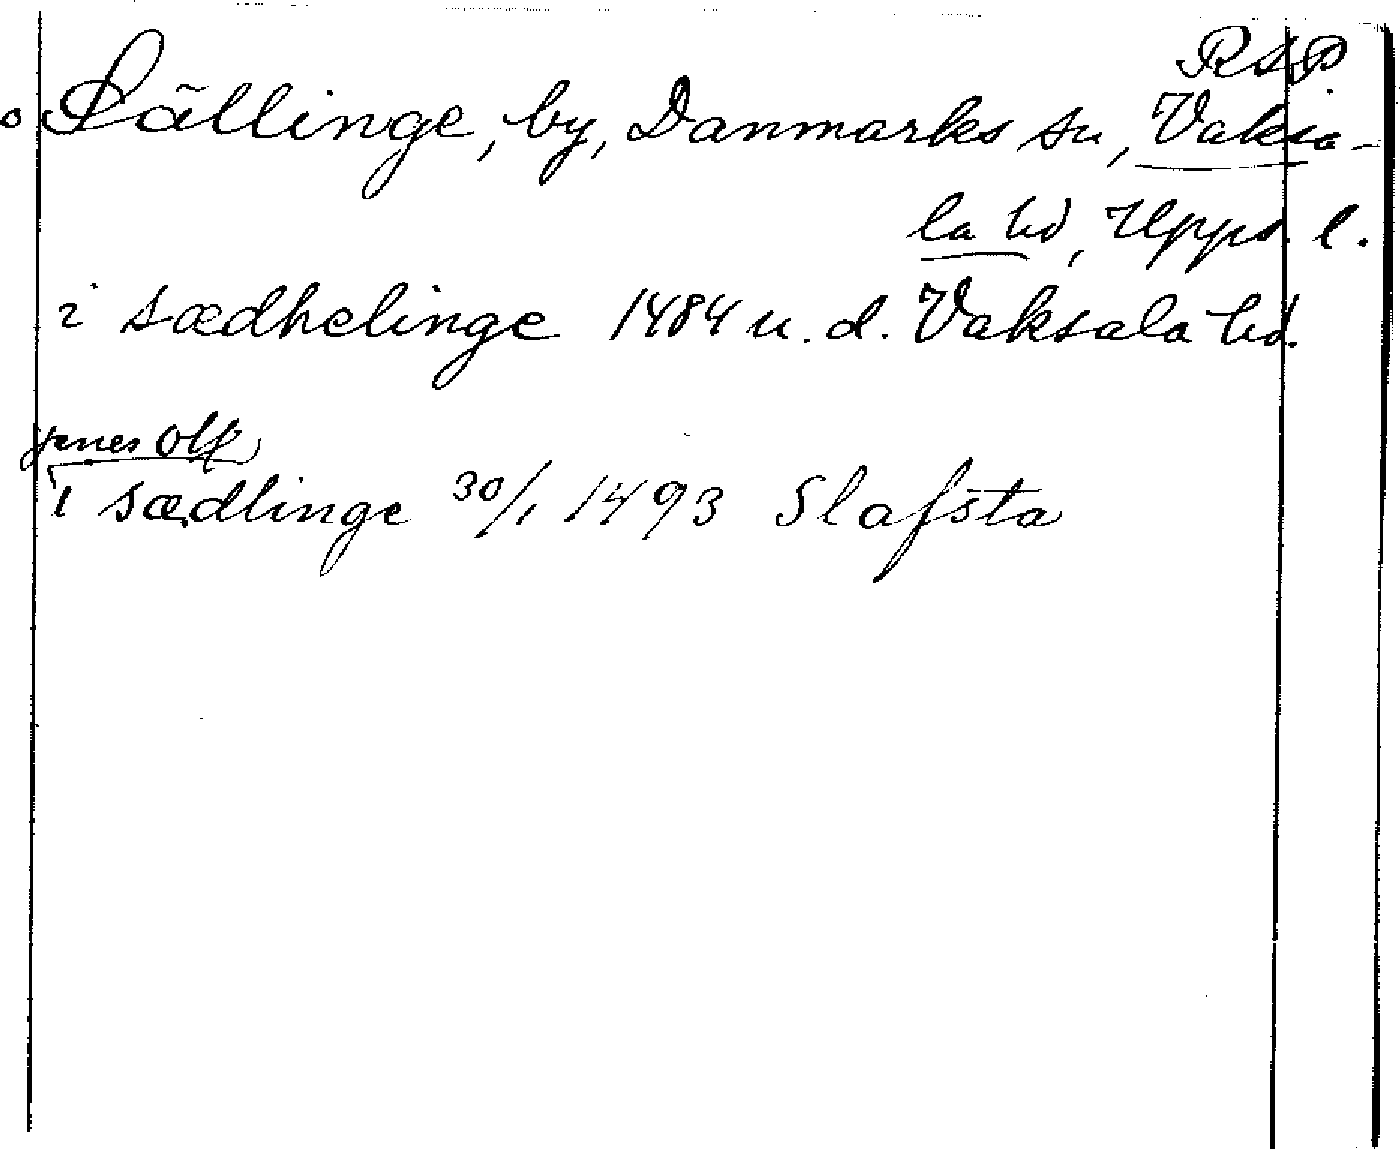 RAP
Sällinge, by, Danmarks sn, Vaksa-
la hd, Upps. l.
i sædhelinge 1484 u. d. Vaksala hd.
jenes Olf
i sædlinge 30/1 1493 Slafsta